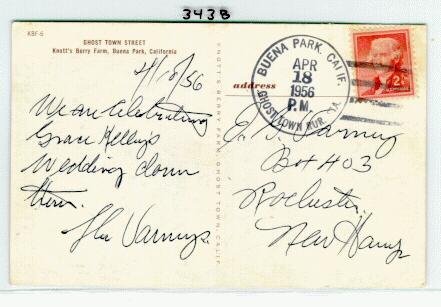 3438
KBF-6
GHOST TOWN STREET
Knott's Berry Farm, Buena Park, California
4/18/56
We are Celebrating
Grace Kelly's
Wedding down
there.
The Varneys.
KNOTT'S BERRY FARM, GHOST TOWN, CALIF.
BUENA PARK, CALIF.
APR
18
1956
P.M.
GHOST TOWN RUR. STA.
address
2¢
Varney
Box 403
Rochester
New Hamp